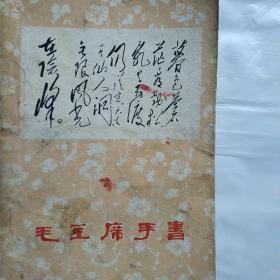 暮色苍
茫看劲松
乱云飞渡
仍从容天生
一个仙人洞
无限风光
在险峰。
毛主席手書